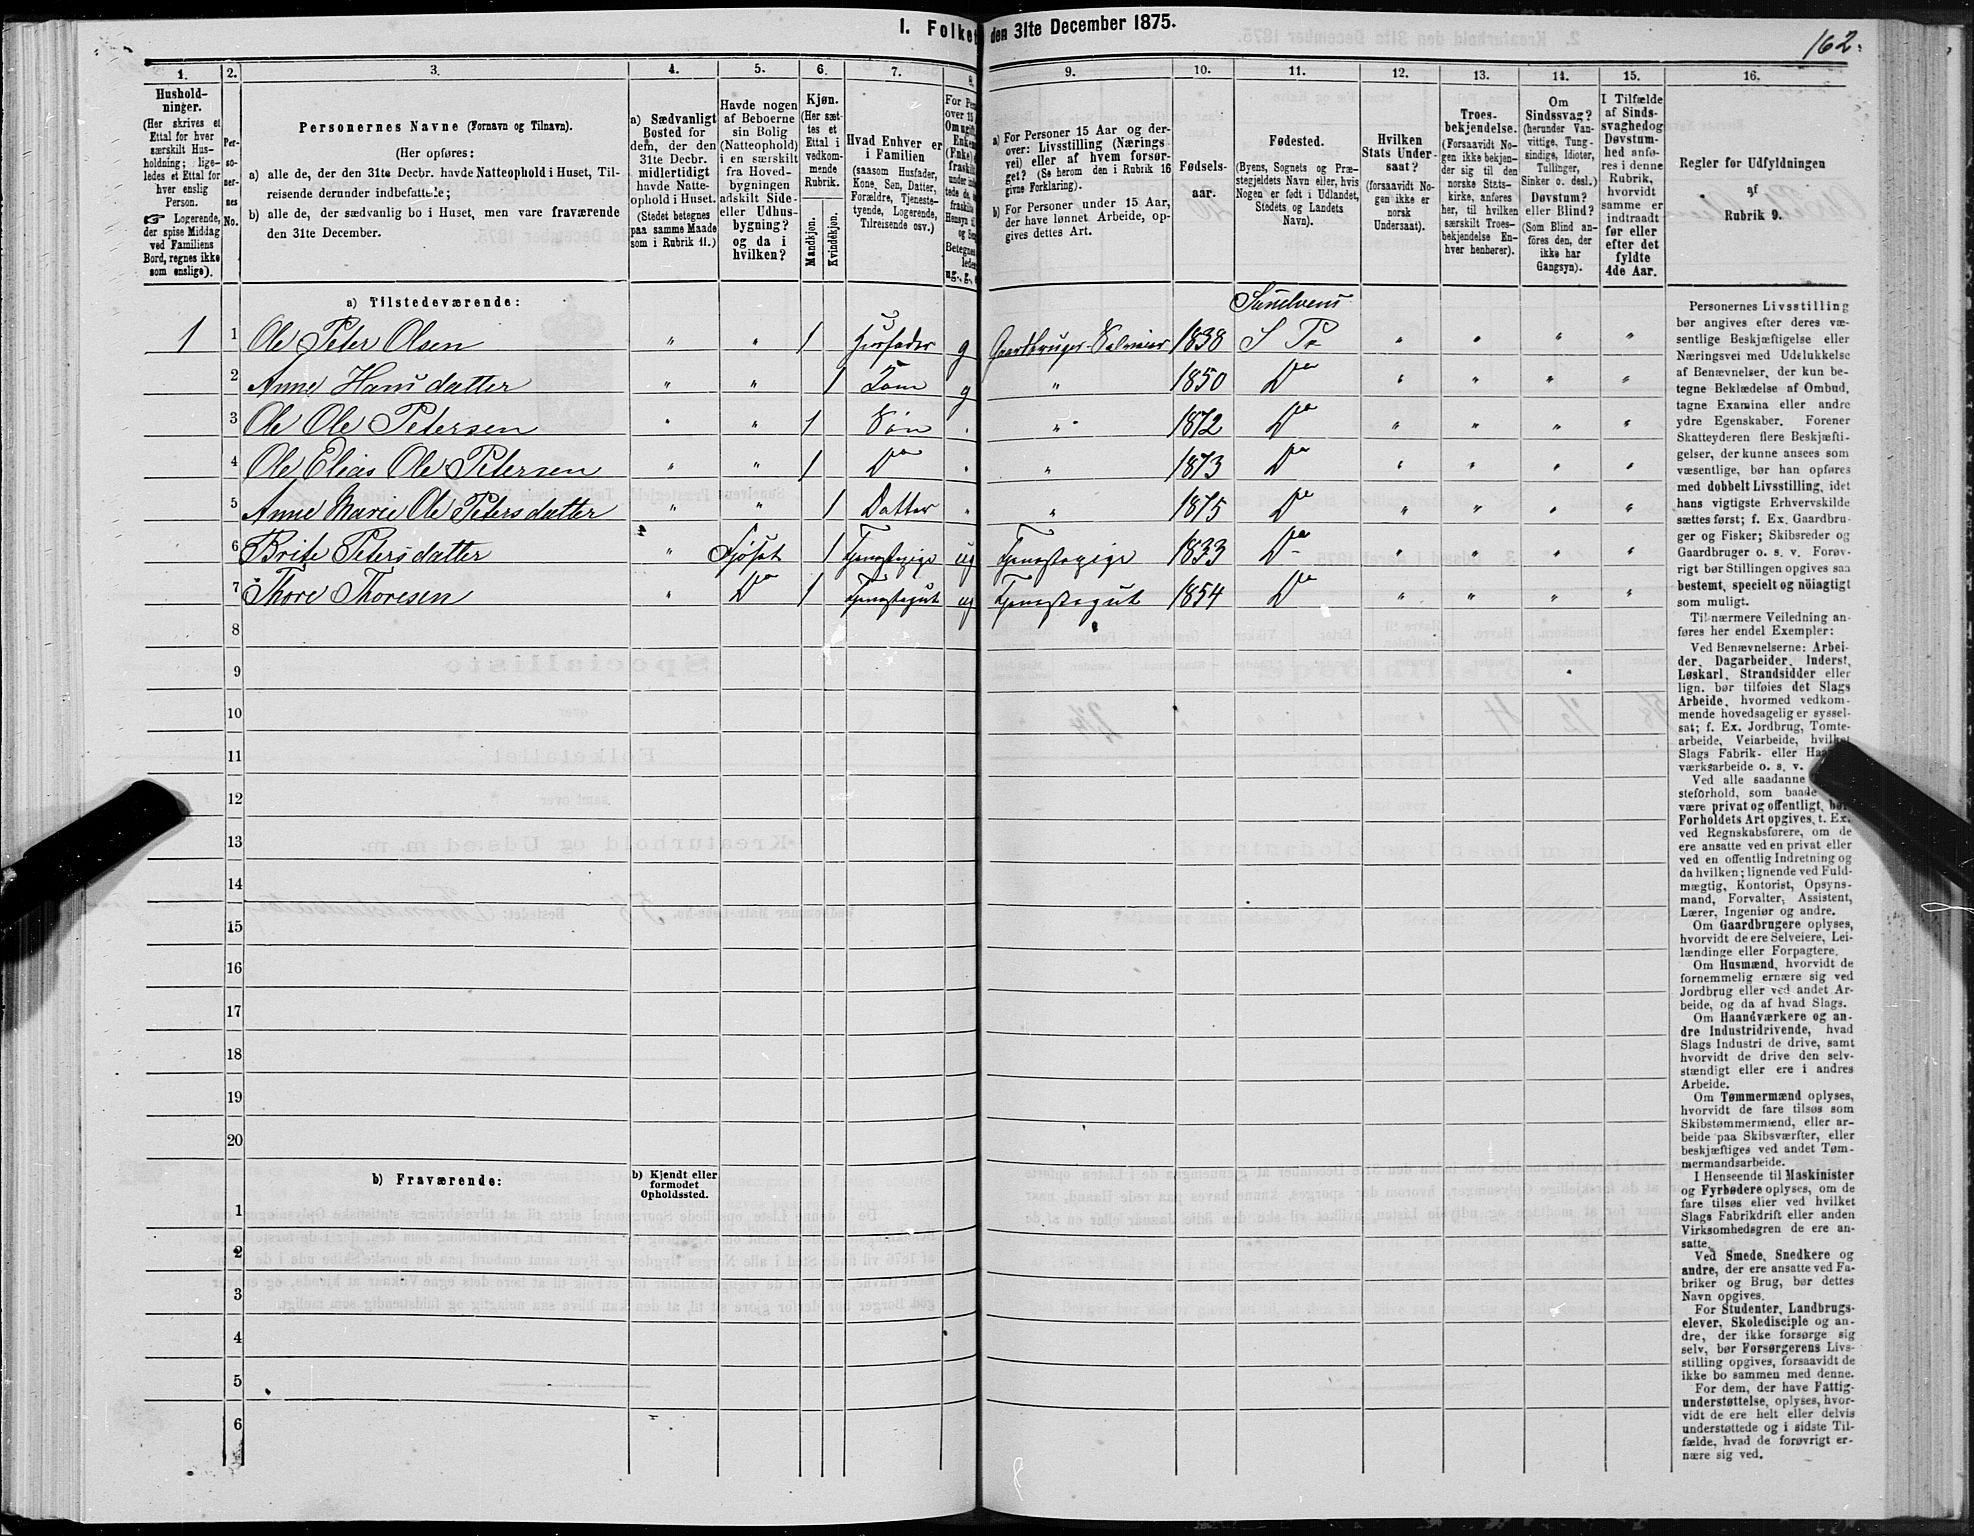 1. Folket den 31te December 1875.
162.
1. 2. 3. 4. 5. 6. 7. 8. 9. 10. 11. 12. 13. 14. 15. 16.
Hushold-
ninger.
(Her skrives et
Ettal for hver
særskilt Hus-
holdning; lige-
ledes et Ettal for
hver enslig
Person.
☞ Logerende,
der spise Middag
ved Familiens
Bord, regnes ikke
som enslige).
Per-
so-
ner-
nes
No.
Personernes Navne (Fornavn og Tilnavn).
(Her opføres:
a) alle de, der den 31te Decbr. havde Natteophold i Huset, Til-
reisende derunder indbefattede;
b) alle de, der sædvanlig bo i Huset, men vare fraværende
den 31te December.
a) Sædvanligt
Bosted for
dem, der den
31te Decbr.
midlertidigt
havde Natte-
ophold i Huset.
(Stedet betegnes
paa samme Maade
som i Rubrik 11.)
Havde nogen
af Beboerne
sin Bolig
(Natteophold)
i en særskilt
fra Hoved-
bygningen
adskilt Side-
eller Udhus-
bygning?
og da i
hvilken?
Kjøn.
(Her sæt-
tes et
Ettal i
vedkom-
mende
Rubrik.
Mandkjøn.
Kvindekjøn.
Hvad Enhver er
i Familien
(saasom Husfader,
Kone, Søn, Datter,
Forældre, Tjeneste-
tyende, Logerende,
Tilreisende osv.)
For Pe
over 15
Om ugift
Enke
(Enke)
fraskil
a) For Personer 15 Aar og der-
over: Livsstilling (Nærings-
vei) eller af hvem forsør-
get? (Se herom den i Rubrik 16
givne Forklaring).
b) For Personer under 15 Aar,
der have lønnet Arbeide, op-
gives dettes Art.
Fødsels-
aar.
Fødested.
(Byens, Sognets og Præ-
stegjeldets Navn eller, hvis
Nogen er født i Udlandet,
Stedets og Landets
Navn).
Hvilken
Stats Under-
saat?
(forsaavidt No-
gen ikke er
norsk
Undersaat).
Troes-
bekjendelse.
(Forsaavidt No-
gen ikke bekjen-
der sig til den
norske Stats-
kirke, anføres
her, til hvilken
særskilt Troes-
bekjendelse En-
hver henhører).
Om
Sindssvag?
(herunder Van-
vittige, Tung-
sindige, Idioter,
Tullinger,
Sinker o. desl.)
Døvstum?
eller Blind?
(Som Blind an-
føres den, der
ikke har
Gangsyn).
I Tilfælde
af Sinds-
svaghed og
Døvstum-
hed anfø-
res i denne
Rubrik,
hvorvidt
samme er
indtraadt
før eller
efter det
fyldte
4de Aar.
Regler for Udfyldningen
af
Rubrik 9.
a) Tilstedeværende:
Sunelvens
1 1 Ole Peter Olsen " " 1 Husfader g Gaardbruger Selveier 1838 S Po " " " "
2 Anne Hansdatter " " 1 Kone g " 1850 Do " " " "
3 Ole Ole Petersen " " 1 Søn " " 1872 Do " " " "
4 Ole Elias Ole Petersen " " 1 Do " " 1873 Do " " " "
5 Anne Marie Ole Petersdatter " " 1 Datter " " 1875 Do " " " "
6 Brite Petersdatter " Fjøset 1 Tjenestepige ug Tjenestepige 1833 Do " " " "
7 Thore Thoresen " Do 1 Tjenestegut ug Tjenestegut 1854 Do " " " "
8
9
10
11
12
13
14
15
16
17
18
19
20
b) Fraværende:
b) Kjendt eller
formodet
Opholdssted.
1
2
3
4
5
6
Personernes Livsstilling
bør angives efter deres væ-
sentlige Beskjæftigelse eller
Næringsvei med Udelukkelse
af Benævnelser, der kun be-
tegne Beklædelse af Ombud,
tagne Examina eller andre
ydre Egenskaber. Forener
Skatteyderen flere Beskjæfti-
gelser, der kunne ansees som
væsentlige, bør han opføres
med dobbelt Livsstilling, idet
hans vigtigste Erhvervskilde
sættes først; f. Ex. Gaardbru-
ger og Fisker; Skibsreder og
Gaardbruger o. s. v. Forøv-
rigt bør Stillingen opgives saa
bestemt, specielt og nöiagtigt
som muligt.
Til nærmere Veiledning an-
føres her endel Exempler:
Ved Benævnelserne: Arbei-
der, Dagarbeider, Inderst,
Løskarl, Strandsidder eller
lign. bør tilføies det Slags
Arbeide, hvormed vedkom-
mende hovedsagelig er syssel-
sat; f. Ex. Jordbrug, Tomte-
arbeide, Veiarbeide, hvilket
Slags Fabrik- eller Haand-
værksarbeide o. s. v.
Ved alle saadanne
steforhold, som baade
være privat og offentligt, bør
Forholdets Art opgives, t. Ex.
ved Regnskabsførere, om de
ere ansatte ved en privat eller
ved en offentlig Indretning og
da hvilken; lignende ved Fuld-
mægtig, Kontorist, Opsyns-
mand, Forvalter, Assistent,
Lærer, Ingeniør og andre.
Om Gaardbrugere oplyses,
hvorvidt de ere Selveiere, Lei-
lændinge eller Forpagtere.
Om Husmænd, hvorvidt de
fornemmelig ernære sig ved
Jordbrug eller ved andet Ar-
beide, og da af hvad Slags.
Om Haandværkere og an-
dre Industridrivende, hvad
Slags Industri de drive, samt
hvorvidt de drive den selv-
stændigt eller ere i andres
Arbeide.
Om Tømmermænd oplyses,
hvorvidt de fare tilsøs som
Skibstømmermænd, eller ar-
beide paa Skibsværfter, eller
beskjæftiges ved andet Tøm-
mermandsarbeide.
I Henseende til Maskinister
og Fyrbødere oplyses, om de
fare tilsøs eller ved hvilket
Slags Fabrikdrift eller anden
Virksomhedsgren de ere an-
satte.
Ved Smede, Snedkere og
andre, der ere ansatte ved Fa-
briker og Brug, bør dettes
Navn opgives.
For Studenter, Landbrugs-
elever, Skoledisciple og an-
dre, der ikke forsørge sig
selv, bør Forsørgerens Livs-
stilling opgives, forsaavidt de
ikke bo sammen med denne.
For dem, der have Fattig-
understøttelse, oplyses, hvor-
vidt de ere helt eller delvis
understøttede og i sidste Til-
fælde, hvad de forøvrigt er-
nære sig ved.